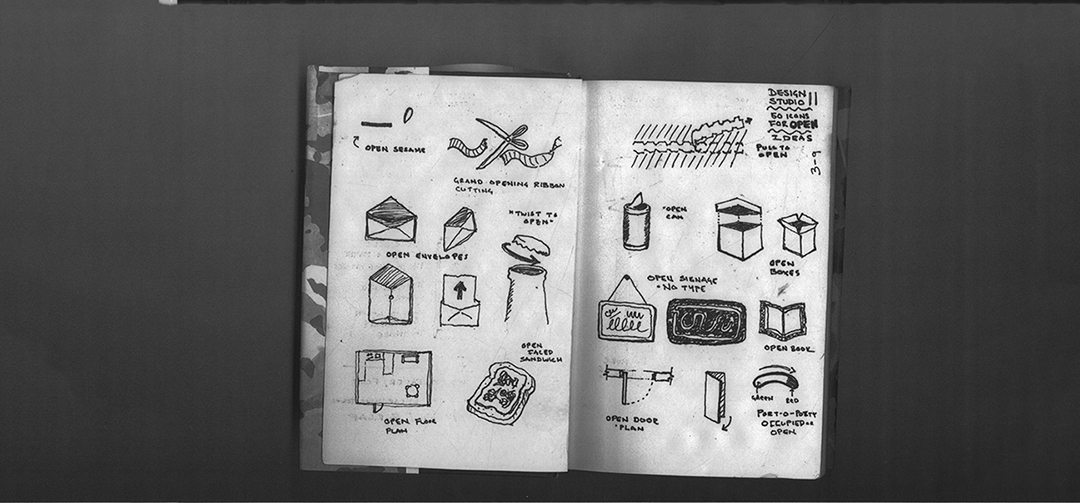 OPEN SESAME
GRAND OPENING RIBBON
CUTTING
"TWIST TO
OPEN"
OPEN ENVELOPES
OPEN
FACED
SANDWICH
OPEN FLOOR
PLAN
DESIGN
STUDIO II
50 ICONS
FOR OPEN
IDEAS
3-9
PULL TO
OPEN
"OPEN
CAN
OPEN
BOXES
OPEN SIGNAGE
- NO TYPE
OPEN BOOK
OPEN DOOR
"PLAN
GREEN RED
PORT-O-POTTY
OCCUPIED OR
OPEN